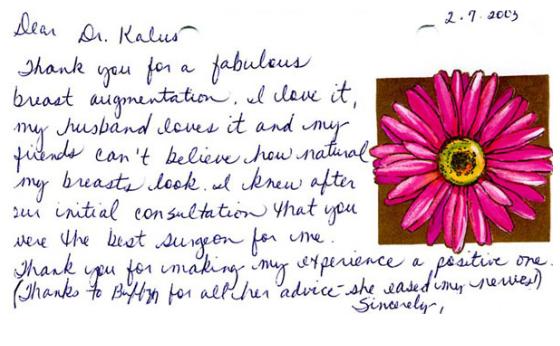 2.7.2003
Dear Dr. Kalus
Thank you for a fabulous
breast augmentation. I love it,
my husband loves it and my
friends can't believe how natural
my breasts look. I knew after
our initial consultation that you
were the best surgeon for me.
Thank you for making my experience a positive one.
(Thanks to for all her advice - she eased my nerves!)
Sincerely,